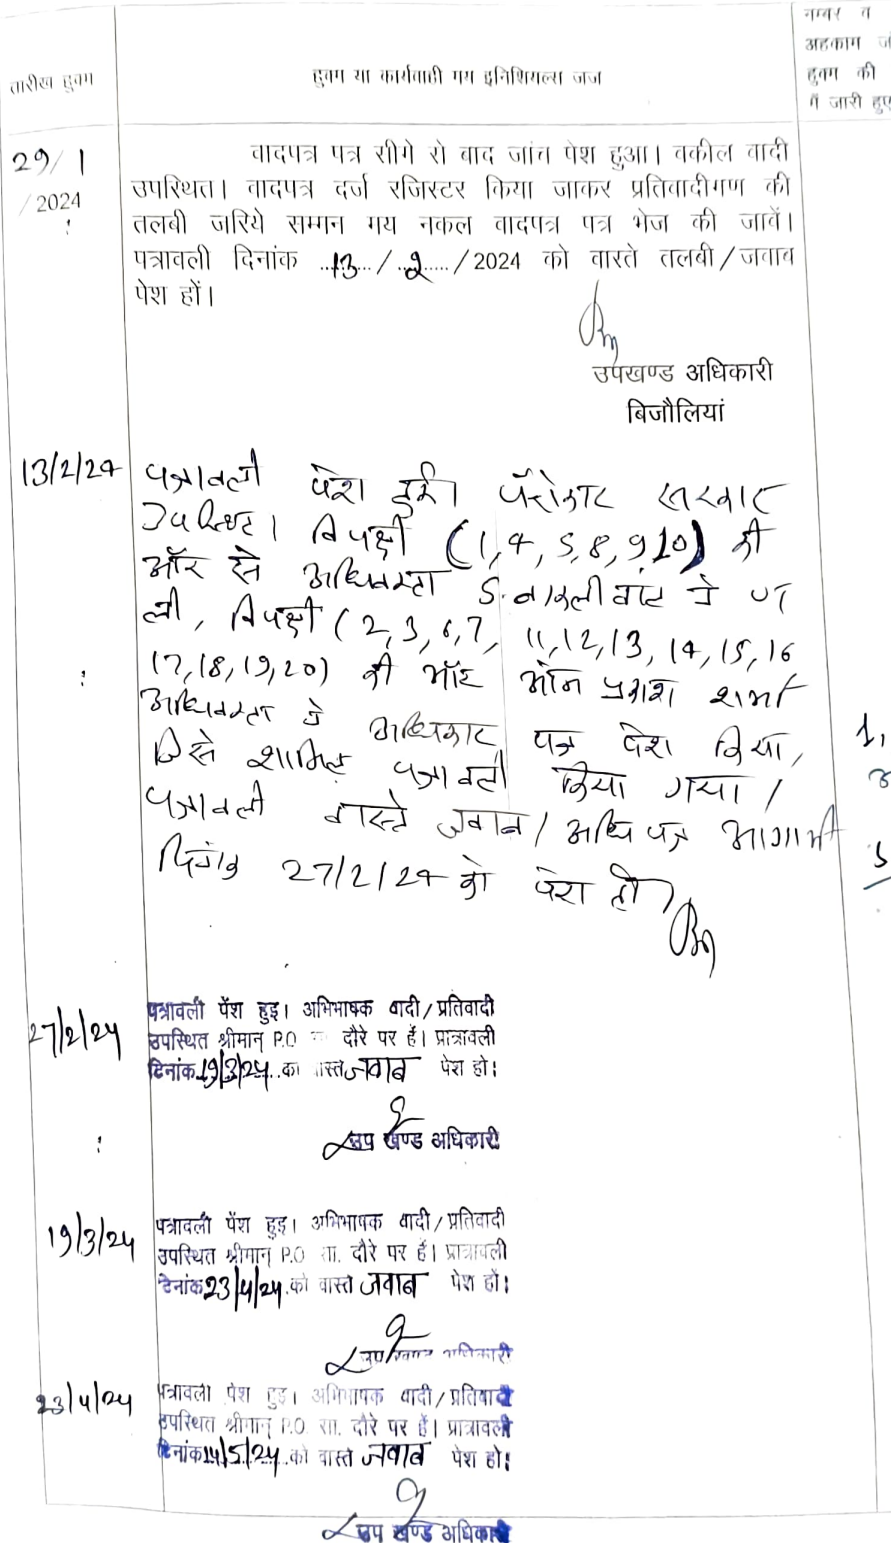 नम्बर व
अहकाम जो
हुक्म की
में जारी हुए
तारीख हुक्म
हुक्म या कार्यवाही मय इनिशियल्स जज
29/1/2024
वादपत्र पत्र सीगे से बाद जांच पेश हुआ। वकील वादी
उपस्थित। वादपत्र दर्ज रजिस्टर किया जाकर प्रतिवादीगण की
तलबी जरिये सम्मन मय नकल वादपत्र पत्र भेज की जावें।
पत्रावली दिनांक ..13.../..2...../2024 को वास्ते तलबी/जवाब
पेश हों।
उपखण्ड अधिकारी
बिजौलियां
13/2/24
पत्रावली पेश हुई। पैरोकार सरकार
उपस्थित। विपक्षी (1,4,5,8,9,10) की
ओर से अधिवक्ता S. ने
ली, विपक्षी (2,3,6,7, 11,12,13,14,15,16
17,18,19,20) की ओर ओम प्रकाश शर्मा
अधिवक्ता ने अधिकार पत्र पेश किया,
जिसे शामिल पत्रावली किया गया/
पत्रावली वास्ते जवाब/अधि पत्र आगामी
दिनांक 27/2/24 को पेश हो
1,
27/2/24
पत्रावली पेंश हुइ। अभिभाषक वादी/प्रतिवादी
उपस्थित श्रीमान् P.O दौरे पर हैं। प्रात्रावली
दिनांक 19/3/24 का वास्ते जवाब पेश हो।
उप खण्ड अधिकारी
19/3/24
पत्रावली पेंश हुइ। अभिभाषक वादी/प्रतिवादी
उपस्थित श्रीमान् P.O सा. दौरे पर हैं। प्रात्रावली
दिनांक 23/4/24 को वास्ते जवाब पेश हो।
उप खण्ड अधिकारी
23/4/24
पत्रावली पेंश हुइ। अभिभाषक वादी/प्रतिवादी
उपस्थित श्रीमान् P.O. सा. दौरे पर हैं। प्रात्रावली
दिनांक 14/5/24 को वास्ते जवाब पेश हो।
उप खण्ड अधिकारी